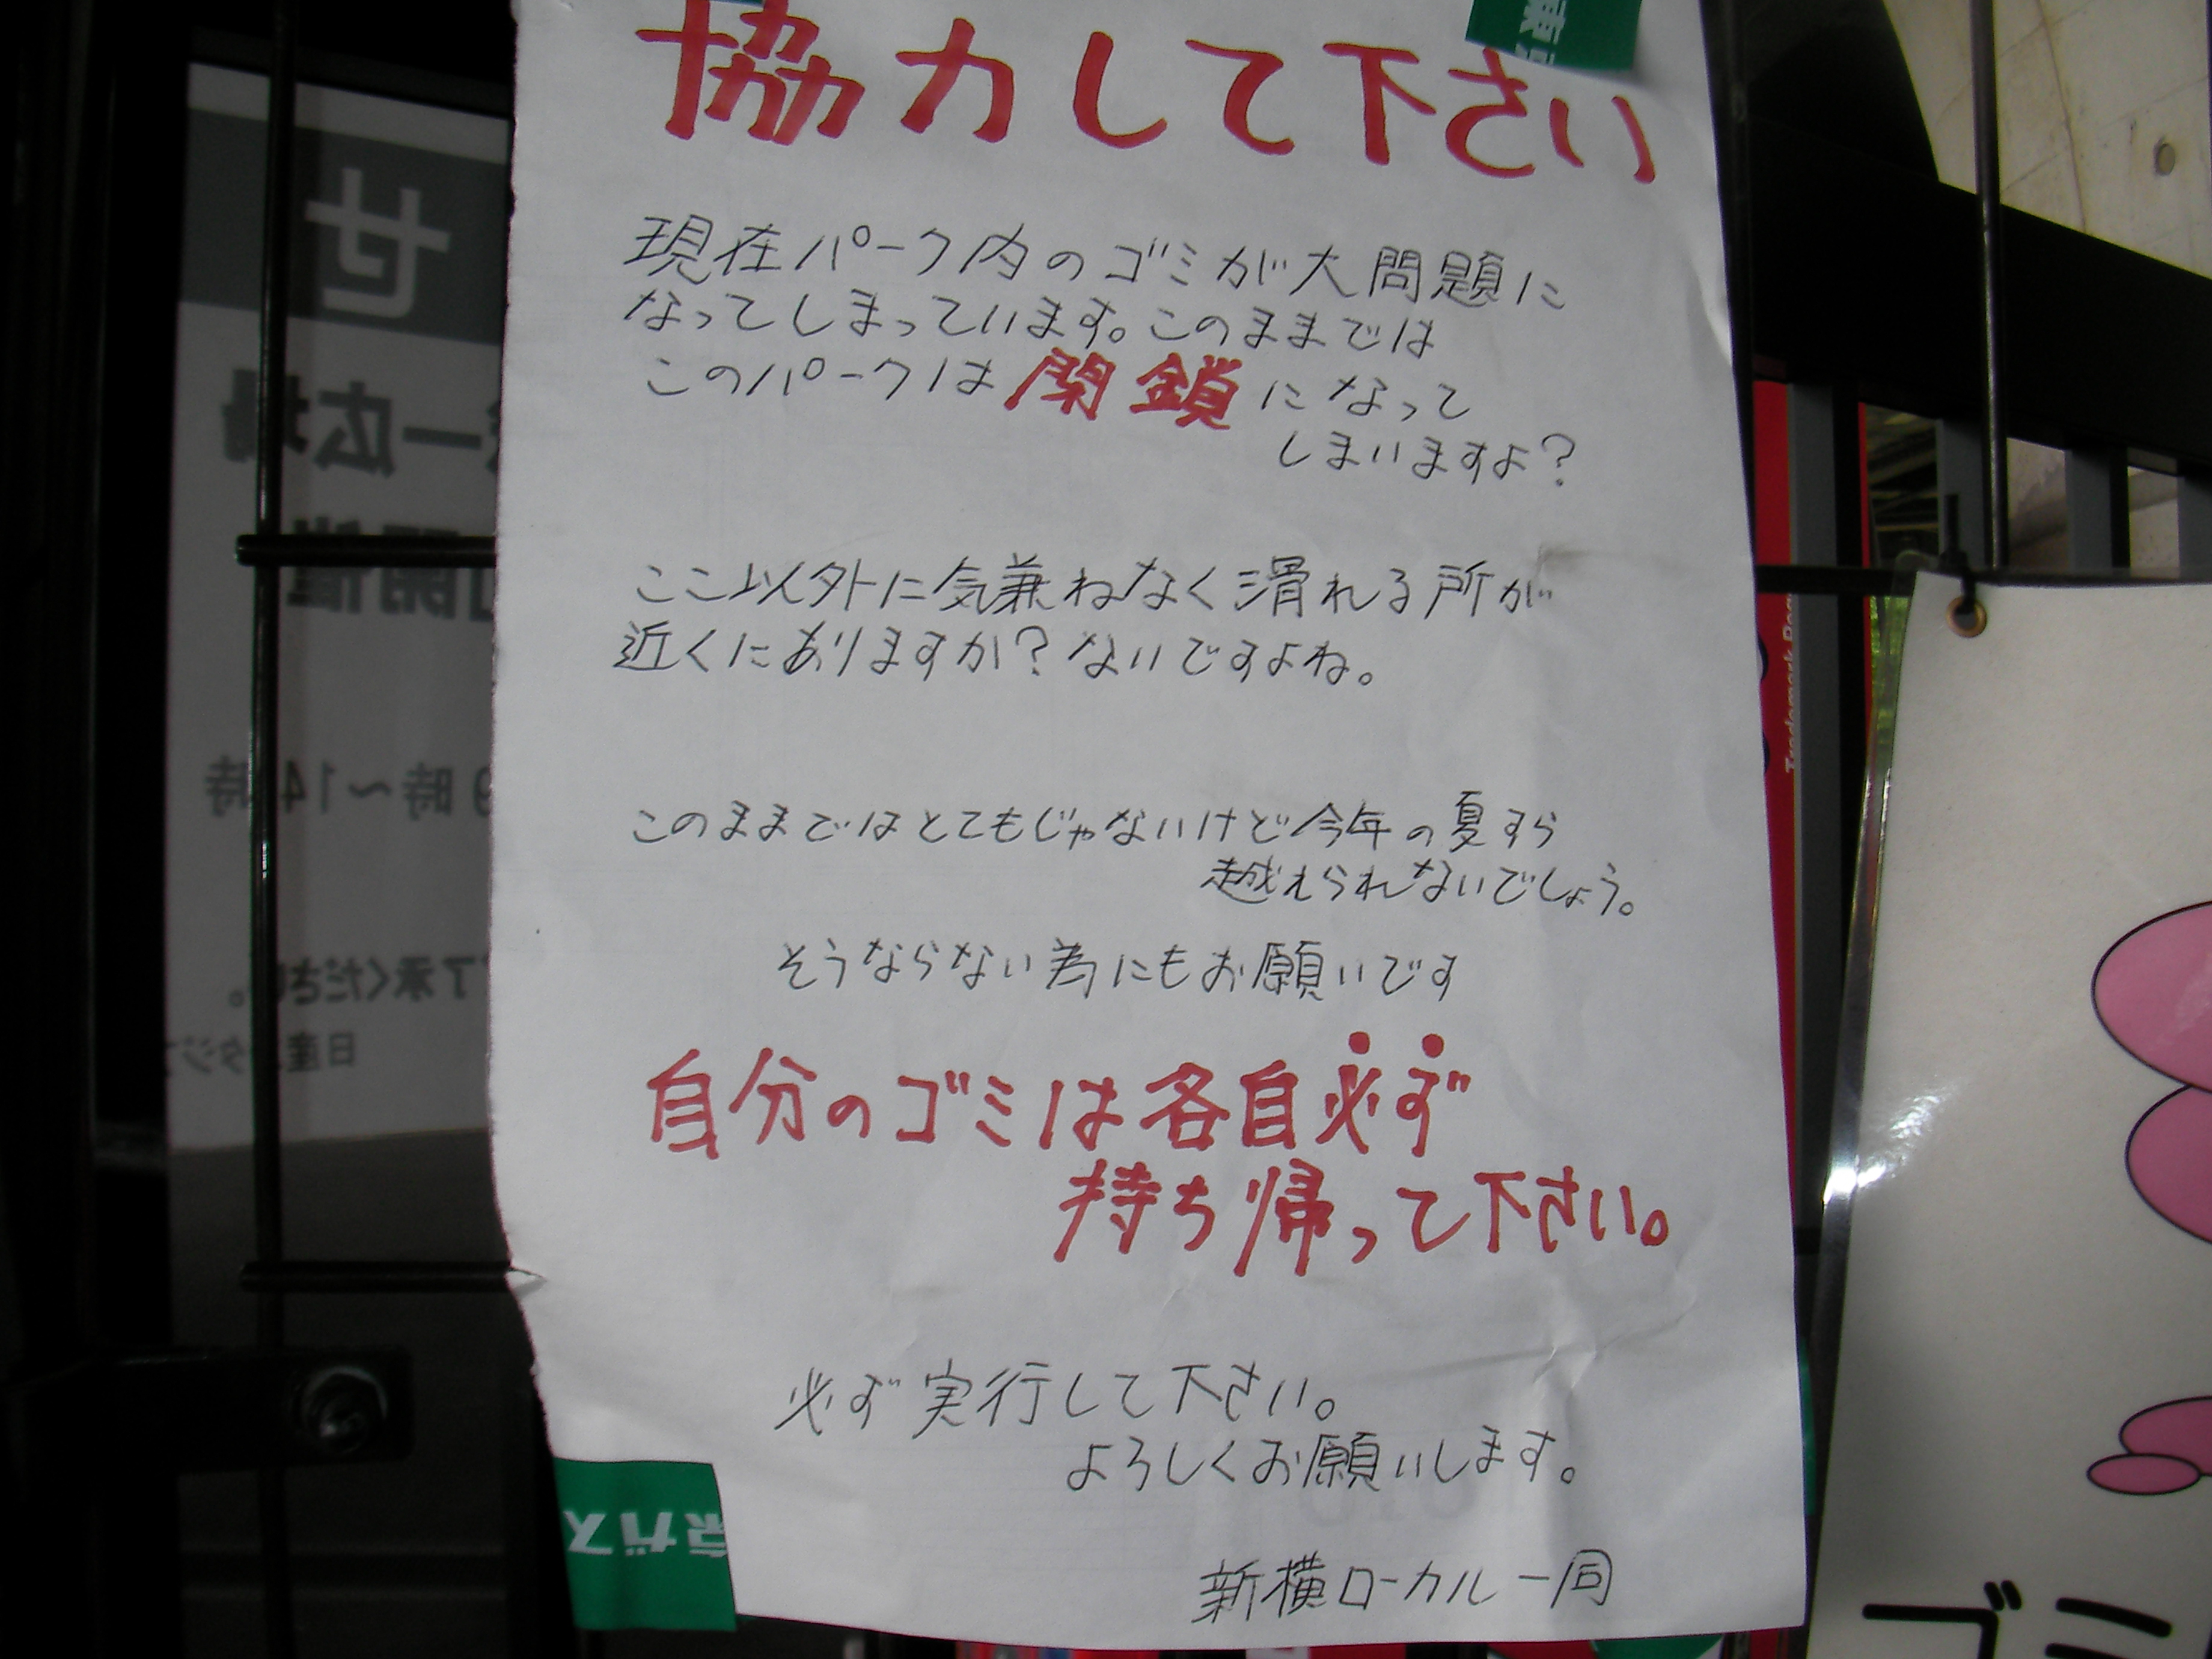 協力して下さい
現在パーク内のゴミが大問題に
なってしまっています。このままでは
このパークは閉鎖になって
しまいますよ?
ここ以外に気兼ねなく滑れる所が
近くにありますか?ないですよね。
このままではとてもじゃないけど今年の夏すら
越えられないでしょう。
そうならない為にもお願いです
自分のゴミは各自必ず
持ち帰って下さい。
必ず実行して下さい。
よろしくお願いします。
新横ローカル一同
京ガス
ゴミ
広場
開催
9時~14時
了承ください。
日産スタジ
Trademark